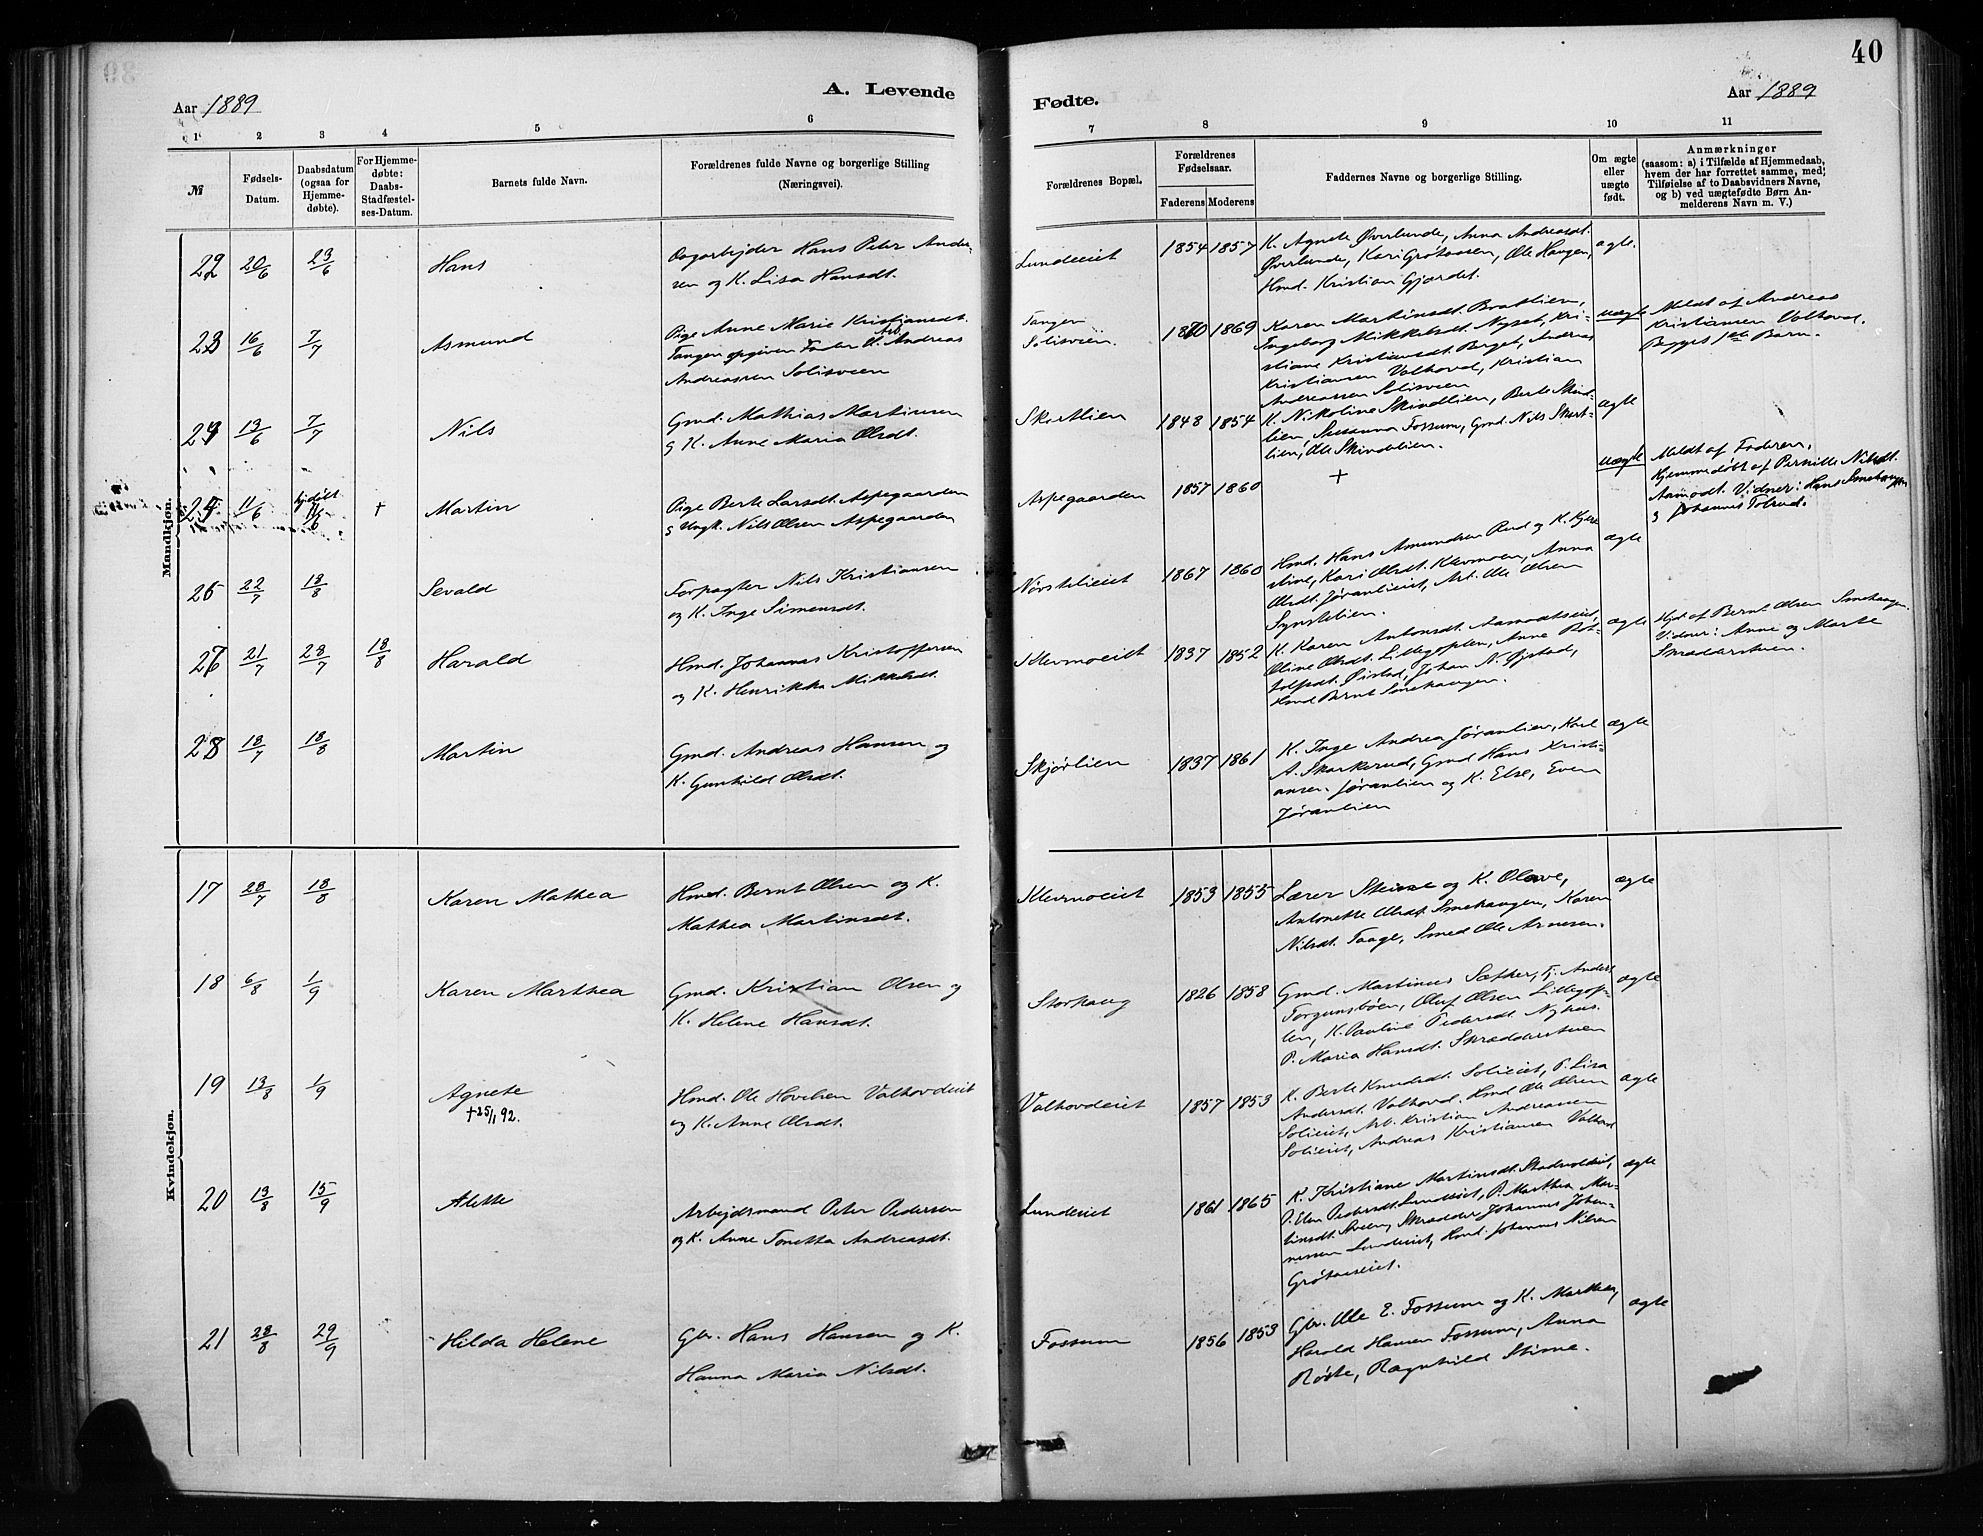 40
Aar 1889
A. Levende
Fødte.
Aar 1889
1 2 3 4 5 6 7 8 9 10 11
№
Fødsels-Datum.
Daabsdatum (ogsaa for Hjemmedøbte).
For Hjemmedøbte: Daabs-Stadfæstelses-Datum.
Barnets fulde Navn.
Forældrenes fulde Navne og borgerlige Stilling (Næringsvei).
Forældrenes Bopæl.
Forældrenes Fødselsaar.
Faderens Moderens
Faddernes Navne og borgerlige Stilling.
Om ægte eller uægte født.
Anmærkninger
(saasom: a) i Tilfælde af Hjemmedaab, hvem der har forrettet samme, med Tilføielse af to Daabsvidners Navne, og b) ved uægtefødte Børn Anmelderens Navn m. V.)
Mandkjøn.
22 20/6 23/6 Hans
Hans Peter Andersen og K. Lisa Hansdt.
Lundeeiet 1854 1857
K. Agnete Øverlunde, Anna Andreasdt.
Øverlunde, Kari Grøtaasen, Ole Haugen,
Hmd. Kristian Gjørdet.
ægte.
23 16/6 7/7 Asmund
Pige Anne Marie Kristiansdt.
Tangen opgiven Fader Arb. Andreas
Andreassen Solisveen
Tangen
Solisveen. 1870 1869
Karen Martinsdt. Braatlien,
Ingeborg Mikkelsdt. Nyset, Kri-
stiane Kristiansdt. Berget, Andreas
Kristiansen Valhovd, Kristian
Andreassen Solisveen
uægte
Meldt af Andreas
Kristiansen Valhovd.
Begges 1ste Barn.
24 13/6 7/7 Nils
Gmd. Mathias Martinsen
& K. Anne Maria Olsdt.
Skartlien 1848 1854
K. Nikoline Skindlien, Berte Skind-
lien, Susanna Fossum, Gmd. Nils Skart-
lien, Ole Skindelien.
ægte
25 11/6 hjdøbt 11/6 + Martin
Pige Berte Larsdt. Aspegaarden
& Ungk. Nils Olsen Aspegaarden
Aspegaarden 1857 1860
+
uægte
Meldt af Faderen,
Hjemmedøbt af Pernille Nilsdt.
Aamodt. Vidner: Hans Smehaugen
& Johannes Tolrud.
26 22/7 18/8 Sevald
Forpagter Nils Kristiansen
og K. Inge Simensdt.
Nørstelieiet 1867 1860
Hmd. Hans Amundsen Rud og K. Kjer-
stine, Kari Olsdt. Klevmoen, Anna
Olsdt. Jøranlieiet, Arb. Ole Olsen
Synstelien.
ægte
27 21/7 28/7 18/8 Harald
Hmd. Johannes Kristoffersen
og K. Henrikka Mikkelsdt.
Klevmoeiet 1837 1852
K. Karen Antonsdt. Aamodtseiet,
Oline Olsdt. Lillegoplen, Anne Rot-
tolfsdt. Øistad, Johan N. Øistad,
Hmd Bernt Smehaugen.
ægte
Hjd. af Bernt Olsen Smehaugen.
Vidner: Anne og Marte
Skrædderstuen.
28 18/7 18/8 Martin
Gmd. Andreas Hansen og
K. Gunhild Olsdt.
Skjørlien 1837 1861
K. Inge Andrea Jøranlien, Karl
A. Skarkerud, Gmd Hans Kristi-
ansen Jøranlien og K. Else, Even
Jøranlien
ægte
Kvindekjøn.
17 28/7 18/8 Karen Mathea
Hmd. Bernt Olsen og K.
Mathea Martinsdt.
Klevmoeiet 1853 1855
Lærer Stisne og K. Olave,
Antonette Olsdt. Smehaugen, Karen
Nilsdt. Taage, Smed Ole Arnesen.
ægte
18 6/8 1/9 Karen Marthea
Gmd. Kristian Olsen og
K. Helene Hansdt.
Storhaug 1826 1858
Gmd. Martinus Sæther, Tj. Anders
Torgunsbøen, Oluf Olsen Lillegop-
len, K. Pauline Pedersdt. Nyhus.
P. Maria Hansdt. Skrædderstuen
ægte
19 13/8 1/9 Agnete
+ 25/1 92.
Hmd. Ole Hovelsen Valhovdeiet
og K. Anne Olsdt.
Valhovdeiet 1857 1853
K. Berte Knudsdt. Solieiet, P. Lisa
Andersdt. Valhovd. Hmd Ole Olsen
Solieiet, Arb. Kristian Andreassen
Solieiet, Andreas Kristiansen Valhovd
ægte
20 13/8 15/9 Alette
Arbejdsmand Peter Pedersen
og K. Anne Tonetta Andreasdt.
Lundeiet 1861 1865
K. Kristiane Martinsdt.
Pedersdt. Lundeiet, P. Marthea Mar-
tinsdt. Sveen, Skrædder Johannes Johan-
nessen Lundeiet, Hmd. Johannes Nilsen
Grøtaaseiet.
ægte
21 28/8 29/9 Hilda Helene
Gbr. Hans Hansen og K.
Hanna Maria Nilsdt.
Fossum 1856 1853
Gbr. Ole E. Fossum og K. Marthea,
Harald Hansen Fossum, Anna
Røste, Ragnhild Stisne.
ægte